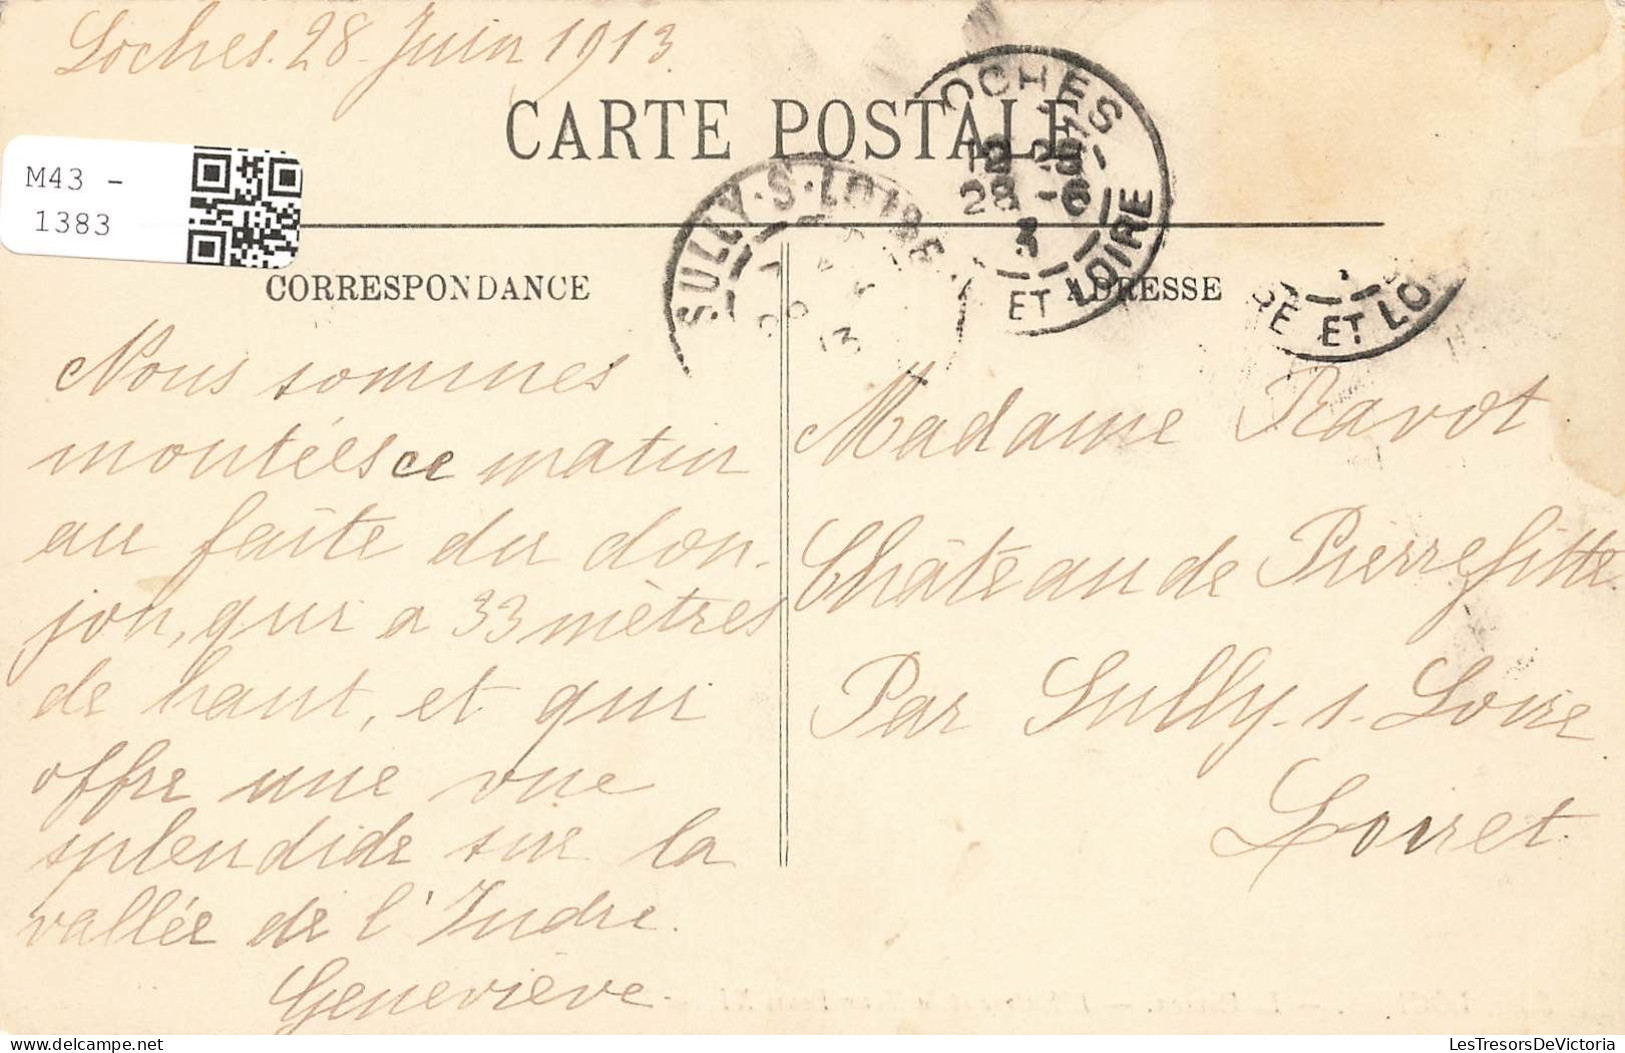 Loches. 28 Juin 1913.
CARTE POSTALE
M43 -
1383
OCHES
12
28 - 6
ET LOIRE
SULLY·S·LOIRE
13
ET LO
CORRESPONDANCE
ADRESSE
Nous sommes
montées ce matin
au faîte du don-
jon, qui a 33 mètres
de haut, et qui
offre une vue
splendide sur la
vallée de l'Indre.
Geneviève.
Madame Ravot
Château de Pierrefitte
Par Sully-s-Loire
Loiret
LesTresorsDeVictoria